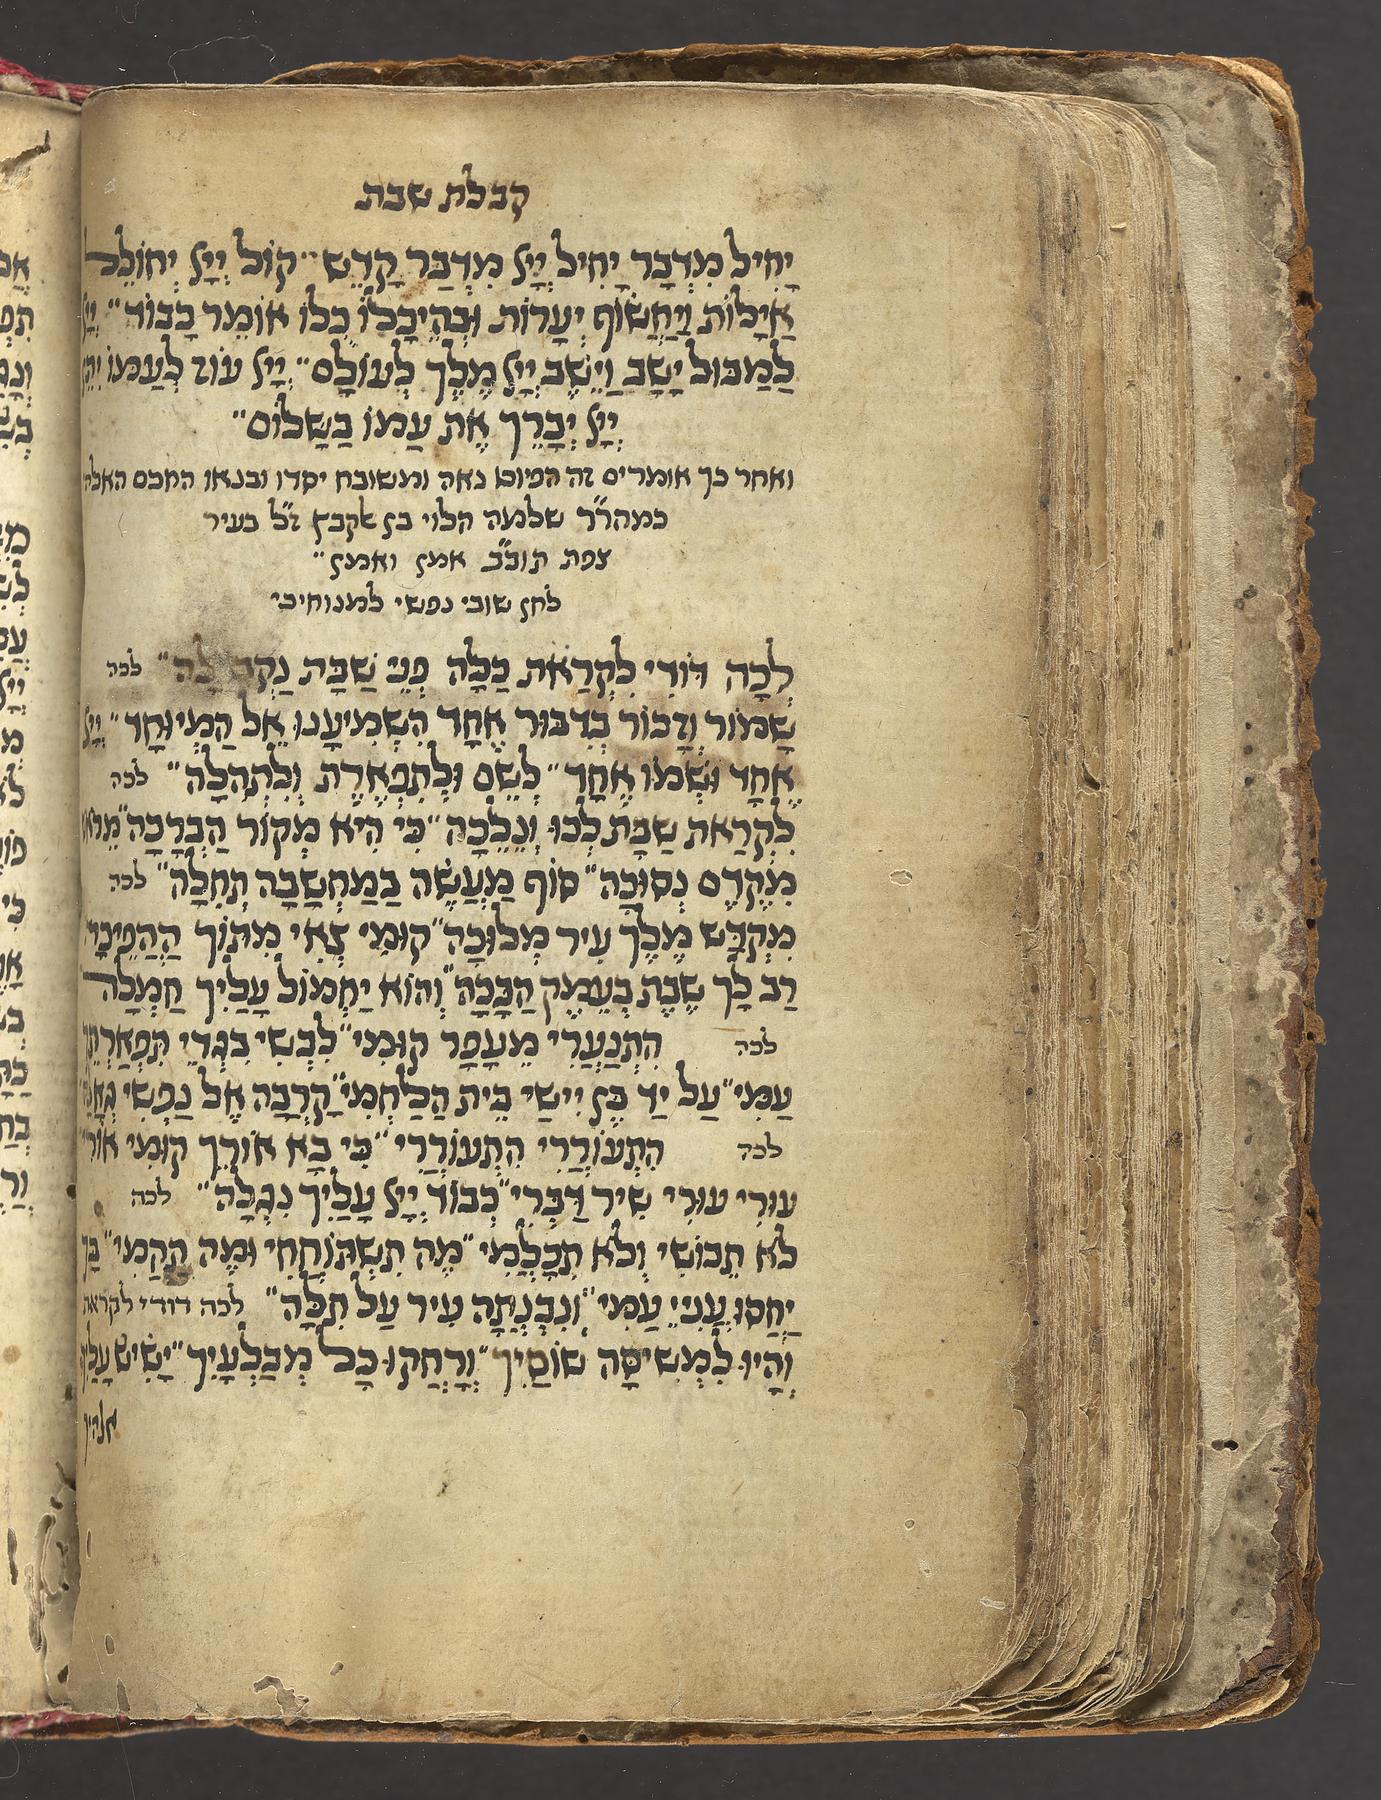 קבלת שבת
יָחִיל מִדְבָּר יָחִיל יְיָ מִדְבַּר קָדֵשׁ קוֹל יְיָ יְחוֹלֵל
אַיָלוֹת וַיַחֲשׂוֹף יְעָרוֹת וּבְהֵיכָלוֹ כֻּלּוֹ אוֹמֵר כָּבוֹד יְיָ
לַמַבּוּל יָשָׁב וַיֵשֶׁב יְיָ מֶלֶךְ לְעוֹלָם יְיָ עוֹז לְעַמוֹ יִתֵן
יְיָ יְבָרֵךְ אֶת עַמוֹ בַשָׁלוֹם
ואחר כך אומרים זה הפיוט נאה ומשובח יסדו ובנאו החכם האלהי
כמהר״ר שלמה הלוי בן אלקבץ ז״ל בעיר
צפת תוב״ב אמן ואמן
לחן שובי נפשי למנוחיכי
לְכָה דוֹדִי לִקְרַאת כַּלָה פְנֵי שַׁבָּת נַקְבְּלָה לכה
שָׁמוֹר וְזָכוֹר בְּדִבּוּר אֶחָד הִשְׁמִיעָנוּ אֵל הַמְיוּחָד יְיָ
אֶחָד וּשְׁמוֹ אֶחָד לְשֵׁם וּלְתִפְאֶרֶת וְלִתְהִלָה לכה
לִקְרַאת שַׁבָּת לְכוּ וְנֵלֵכָה כִּי הִיא מְקוֹר הַבְּרָכָה מֵרֹאשׁ
מִקֶדֶם נְסוּכָה סוֹף מַעֲשֶׂה בְּמַחְשָׁבָה תְּחִלָה לכה
מִקְדָשׁ מֶלֶךְ עִיר מְלוּכָה קוּמִי צְאִי מִתּוֹךְ הַהֲפֵיכָה
רַב לָךְ שֶׁבֶת בְּעֵמֶק הַבָּכָה וְהוּא יַחְמוֹל עָלַיִךְ חַמְלָה
לכה הִתְנַעֲרִי מֵעָפָר קוּמִי לִבְשִׁי בִּגְדֵי תִפְאַרְתֵּךְ
עַמִי עַל יַד בֶּן יִישַׁי בֵּית הַלַחְמִי קָרְבָה אֶל נַפְשִׁי גְאָלָהּ
לכה הִתְעוֹרְרִי הִתְעוֹרְרִי כִּי בָא אוֹרֵךְ קוּמִי אוֹרִי
עוּרִי עוּרִי שִׁיר דַבְּרִי כְּבוֹד יְיָ עָלַיִךְ נִגְלָה לכה
לֹא תֵבוֹשִׁי וְלֹא תִכָּלְמִי מָה תִשְׁתּוֹחֲחִי וּמֶה תֵהֱמִי בָּךְ
יֶחֱסוּ עֲנִיֵי עַמִי וְנִבְנְתָה עִיר עַל תִלָהּ לכה דודי לקראת
וְהָיוּ לִמְשִׁיסָה שׁוֹסַיִךְ וְרָחֲקוּ כָּל מְבַלְעָיִךְ יָשִׂישׂ עָלַיִךְ
אלהיך